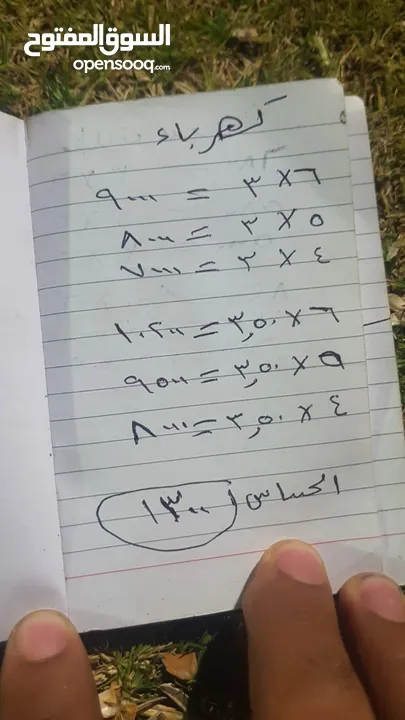 السوق المفتوح
opensooq.com
كهرباء
٦ × ٣ = ٩٠٠٠
٥ × ٣ = ٨٠٠٠
٤ × ٣ = ٧٠٠٠
٦ × ٣,٥٠ = ١٠,٢٠٠
٥ × ٣,٥٠ = ٩٥٠٠
٤ × ٣,٥٠ = ٨٠٠٠
الحساس ١٣٠٠